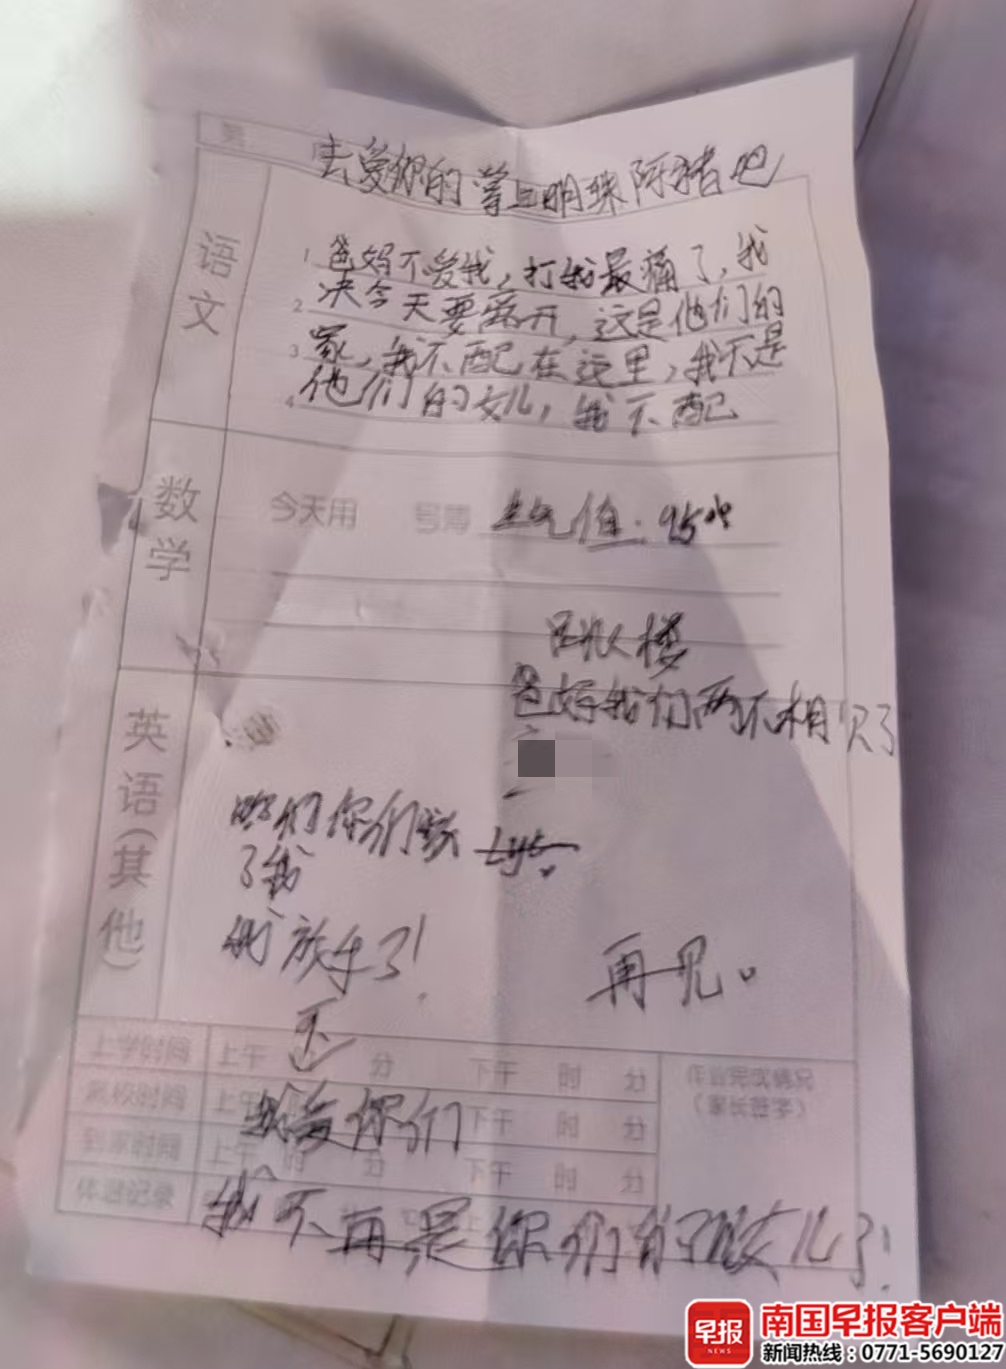 去爱你的掌上明珠阿猪吧
语文
1 爸妈不爱我，打我最痛了，我
2 决今天要离开，这是他们的
3 家，我不配在这里，我不是
4 他们的女儿，我不配
数学
今天用 号簿 生气值：95%
楼
爸妈我们两不相欠了
英语(其他)
你们
了我
我放手了！
再见。
上学时间 上午 分 下午 时 分
作业完成情况
（家长签字）
离校时间 上午 下午 时 分
我爱你们
到家时间 上午 时 分 下午 时 分
体温记录
我不再是你们的女儿了！
早报
NEWS
南国早报客户端
新闻热线：0771-5690127